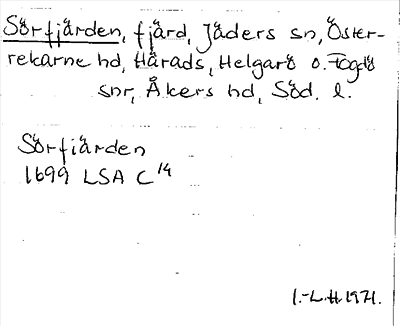 Sörfjärden, fjärd, Jäders sn, Öster-
rekarne hd, Härads, Helgarö o. Fogdö
snr, Åkers hd, Söd. l.
Sörfiärden
1699 LSA C 14
I.-L.H 1971.